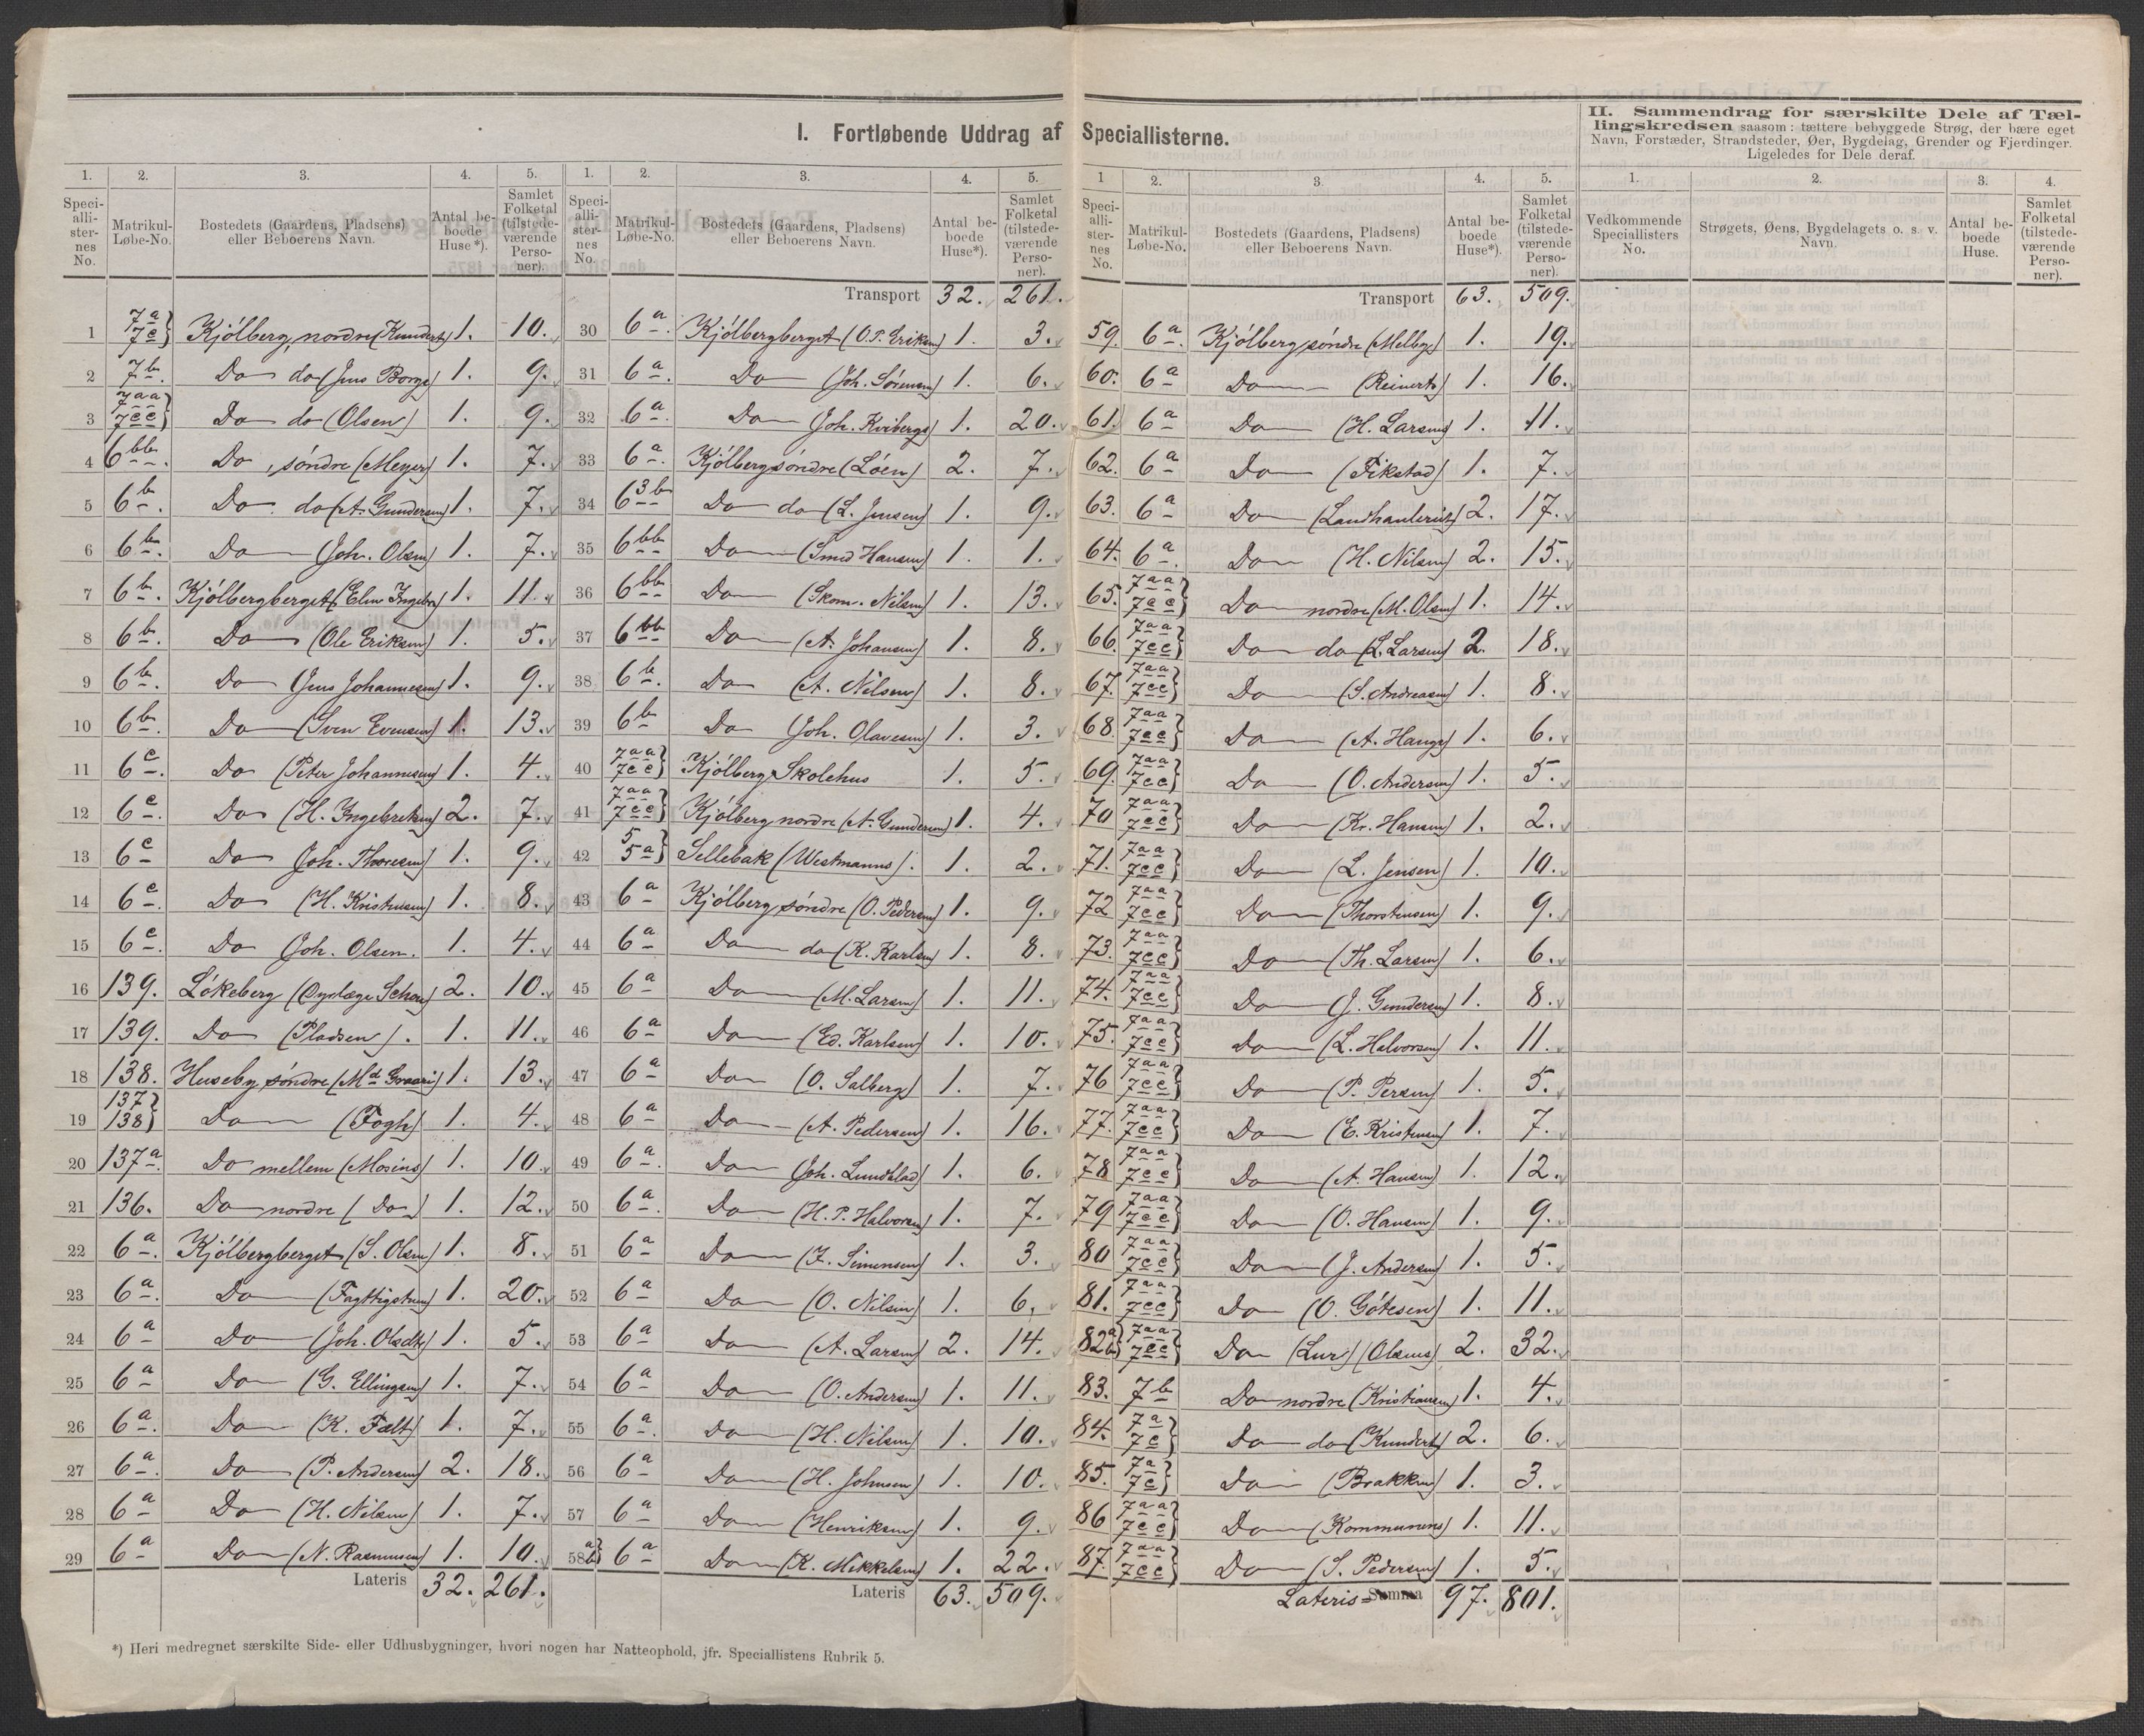 I. Fortløbende Uddrag af Speciallisterne.
II. Sammendrag for særskilte Dele af Tæl-
lingskredsen saasom: tættere bebyggede Strøg, der bære eget
Navn, Forstæder, Strandsteder, Øer, Bygdelag, Grender og Fjerdinger.
Ligeledes for Dele deraf.
1. 2. 3. 4. 5.
Speci-alli-ster-nes No. Matrikul-Løbe-No. Bostedets (Gaardens, Pladsens) eller Beboerens Navn. Antal be-boede Huse*). Samlet Folketal (tilstede-værende Perso-ner).
1 7a 7c} Kjölberg, nordre (Kunderts) 1. 10.
2 7b. Do do (Jens Borge) 1. 9.
3 7aa 7cc} Do do (Olsen) 1. 9.
4 6bb. Do, söndre (Meyer) 1. 7.
5 6b. Do do (A. Gundersen) 1. 7.
6 6b. Do (Joh. Olsen) 1. 7.
7 6b. Kjölbergberget (Elen Ingebr) 1. 11.
8 6b. Do (Ole Eriksen) 1. 5.
9 6b. Do (Jens Johannesen) 1. 9.
10 6b. Do (Sven Evensen) 1. 13.
11 6c. Do (Peter Johannesen) 1. 4.
12 6c. Do (H. Ingebretsen) 2. 7.
13 6c Do Joh. Thoresen) 1. 9.
14 6c. Do (H. Kristensen) 1. 8.
15 6c. Do Joh. Olsen. 1. 4.
16 139. Lökeberg (Schou) 2. 10.
17 139. Do (Pladsen). 1. 11.
18 138. Huseby söndre (Md Graarü) 1. 13.
19 137 138} Do (Fogh) 1. 4.
20 137a. Do mellem (Mosins) 1. 10.
21 136. Do nordre (Do) 1. 12.
22 6a. Kjölbergberget (S. Olsen) 1. 8.
23 6a. Do (Fagttigstuen) 1. 20.
24 6a Do (Joh. Olsdts) 1. 5.
25 6a Do (G. Ellingsen) 1. 7.
26 6a. Do (K. Falt) 1. 7.
27 6a. Do (P. Andersen) 2. 18.
28 6a Do (H. Nilsen) 1. 7.
29 6a Do (N. Rasmussen) 1. 10.
Lateris 32. 261.
1. 2. 3. 4. 5.
Speci-alli-ster-nes No. Matrikul-Løbe-No. Bostedets (Gaardens, Pladsens) eller Beboerens Navn. Antal be-boede Huse*). Samlet Folketal (tilstede-værende Perso-ner).
Transport 32. 261.
30 6a. Kjölbergberget (O. P. Eriksen) 1. 3.
31 6a. Do (Joh. Sörensen) 1. 6.
32 6a. Do Joh. Kvibergs) 1. 20.
33 6a. Kjölberg söndre (Löen) 2. 7.
34 63b Do do (L. Jensen) 1. 9.
35 6bb Do (Smed Hansen) 1. 1.
36 6bb Do (Skom. Nilsen) 1. 13.
37 6bb Do (A. Johansen) 1. 8.
38 6b. Do (A. Nilsen) 1. 8.
39 6b Do Joh. Olavesen) 1. 3.
40 7aa 7cc} Kjölberg Skolehus 1. 5.
41 7aa 7cc} Kjölberg nordre (A. Gundersen) 1. 4.
42 5 5a} Sellebak (Westmanns). 1. 2.
43 6a Kjölberg söndre (O. Pedersen) 1. 9.
44 6a Do do (K. Karlsen) 1. 8.
45 6a Do (M. Larsen) 1. 11.
46 6a Do (Ed. Karlsen) 1. 10.
47 6a Do (O. Salberg) 1. 7.
48 6a Do (A. Pedersen) 1. 16.
49 6a. Do Joh. Lundblad) 1. 6.
50 6a. Do (H. P. Halvorsen) 1. 7.
51 6a Do (Z. Simensen) 1. 3.
52 6a Do (O. Nilsen) 1. 6.
53 6a Do (A. Larsen) 2. 14.
54 6a Do (O. Andersen) 1. 11.
55 6a. Do (H. Nilsen) 1. 10.
56 6a Do (H. Johnsen) 1. 10.
57 6a Do (Henriksen) 1. 9.
58 a b} 6a Do (K. Mikkelsen) 1. 22.
Lateris 63. 509.
1 2. 3. 4. 5.
Speci-alli-ster-nes No. Matrikul-Løbe-No. Bostedets (Gaardens, Pladsens) eller Beboerens Navn. Antal be-boede Huse*). Samlet Folketal (tilstede-værende Perso-ner).
Transport 63. 509.
59. 6a. Kjölberg söndre (Melby) 1. 19.
60. 6a Do (Reinerts) 1. 16.
61. 6a Do (H. Larsen) 1. 11.
62. 6a Do (Fikstad) 1. 7.
63. 6a Do (Landhanleriet) 2. 17.
64. 6a. Do (H. Nilsen) 2. 15.
65. 7aa 7cc} Do nordre (M. Olsen) 1. 14.
66. 7aa 7cc} Do do (L. Larsen) 2. 18.
67. 7aa 7cc} Do (S. Andreasen) 1. 8.
68. 7aa 7cc} Do (A. Hauge) 1. 6.
69. 7aa 7cc} Do (O. Andersen) 1. 5.
70 7aa 7cc} Do (Kr. Hansen) 1. 2.
71. 7aa 7cc} Do (L. Jensen) 1. 10.
72 7aa 7cc} Do (Thorstensen) 1. 9.
73. 7aa 7cc} Do (Th. Larsen) 1. 6.
74. 7aa 7cc} Do (J. Gundersen) 1. 8.
75. 7aa 7cc} Do (L. Halvorsen) 1. 11.
76 7aa 7cc} Do (P. Persen) 1. 5.
77. 7aa 7cc} Do (E. Kristensen) 1. 7.
78 7aa 7cc} Do (A. Hansen) 1. 12.
79 7aa 7cc} Do (O. Hansen) 1. 9.
80 7aa 7cc} Do (J. Andersen) 1. 5.
81. 7aa 7cc} Do (O. Götesen) 1. 11.
82 a b} 7aa 7cc} Do (Lur) (Olsens) 2. 32.
83. 7b Do nordre (Kristiansen) 1. 4.
84. 7a 7c} Do do (Kunderts) 2. 6.
85. 7a 7c} Do (Brakken) 1. 3.
86 7aa 7cc} Do (Kommunens) 1. 11.
87. 7aa 7cc} Do (S. Pedersen) 1. 5.
Lateris Summa 97. 801.
1. 2. 3. 4.
Vedkommende Speciallisters No. Strøgets, Øens, Bygdelagets o. s. v. Navn. Antal be-boede Huse. Samlet Folketal (tilstede-værende Perso-ner).
*) Heri medregnet særskilte Side- eller Udhusbygninger, hvori nogen har Natteophold, jfr. Speciallistens Rubrik 5.